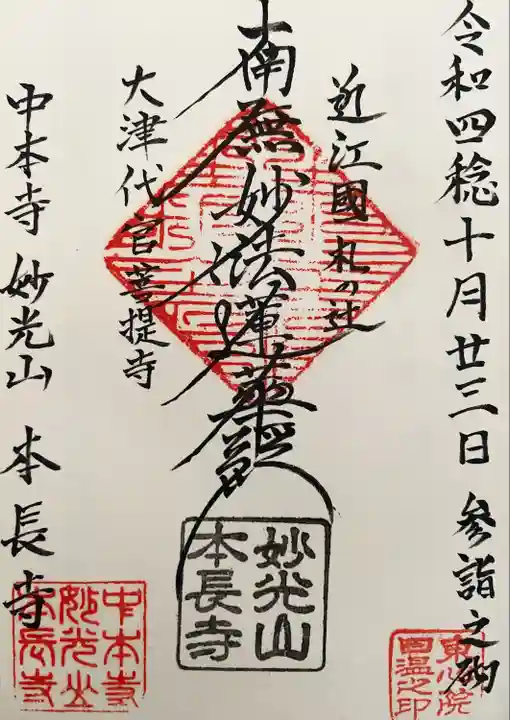 令和四稔十月廿三日 参詣之砌
近江國 札の辻
南無妙法蓮華経
大津代官菩提寺
中本寺 妙光山 本長寺
妙光山
本長寺
中本寺
妙光山
本長寺